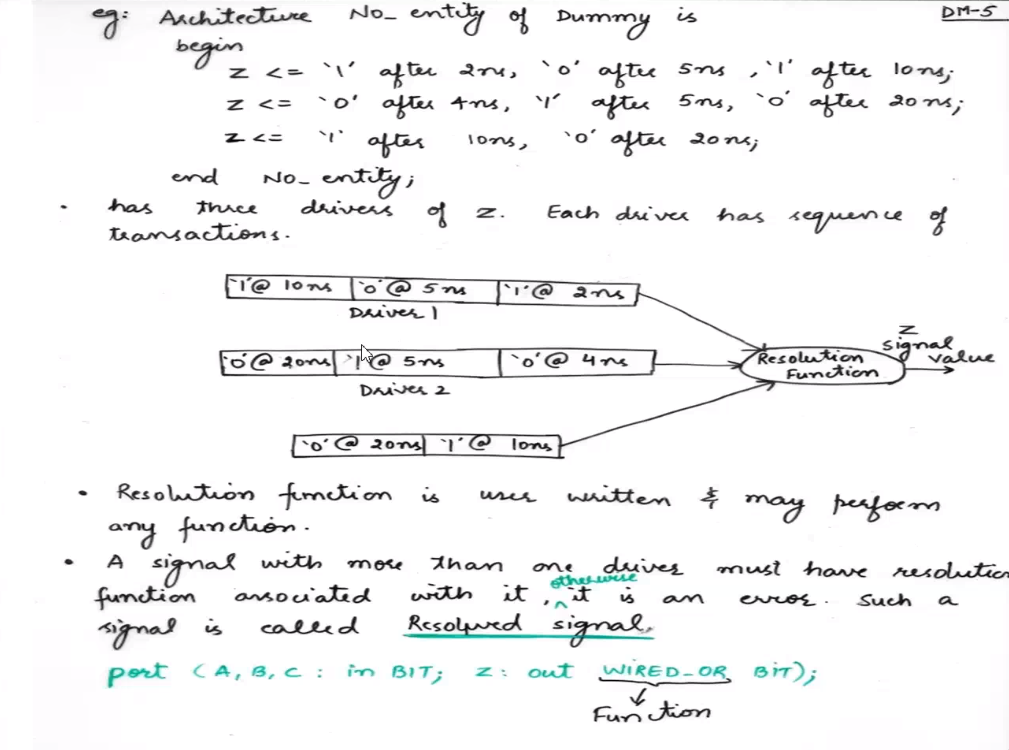 DM-5
eg: Architecture No_entity of Dummy is
begin
Z <= '1' after 2ns, '0' after 5ns, '1' after 10ns;
Z <= '0' after 4ns, '1' after 5ns, '0' after 20ns;
Z <= '1' after 10ns, '0' after 20ns;
end No_entity;
• has three drivers of Z. Each driver has sequence of
transactions.
'1'@ 10ns '0'@ 5ns '1'@ 2ns
Driver 1
'0'@ 20ns '1'@ 5ns '0'@ 4ns
Driver 2
'0'@ 20ns '1'@ 10ns
Resolution
Function
Z
signal
value
• Resolution function is user written & may perform
any function.
• A signal with more than one driver must have resolution
function associated with it, otherwise it is an error. Such a
signal is called Resolved signal.
port (A, B, C : in BIT; Z: out WIRED_OR BIT);
Function